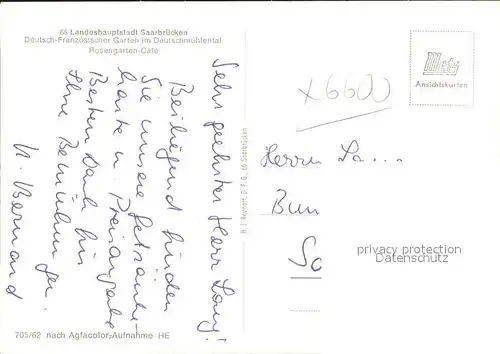 66 Landeshauptstadt Saarbrücken
Deutsch-Französischer Garten im Deutschmühlental
Rosengarten-Café
Sehr geehrter Herr Lang!
Beiliegend finden
Sie unsere Getränke-
karte u. Preisangabe
Besten Dank für
Ihre Bemühungen.
N. Bernard
705/62 nach Agfacolor-Aufnahme HE
66 Saarbrücken
Metz
Ansichtskarten
x6600
Herrn La....
Bun
So
privacy protection
Datenschutz